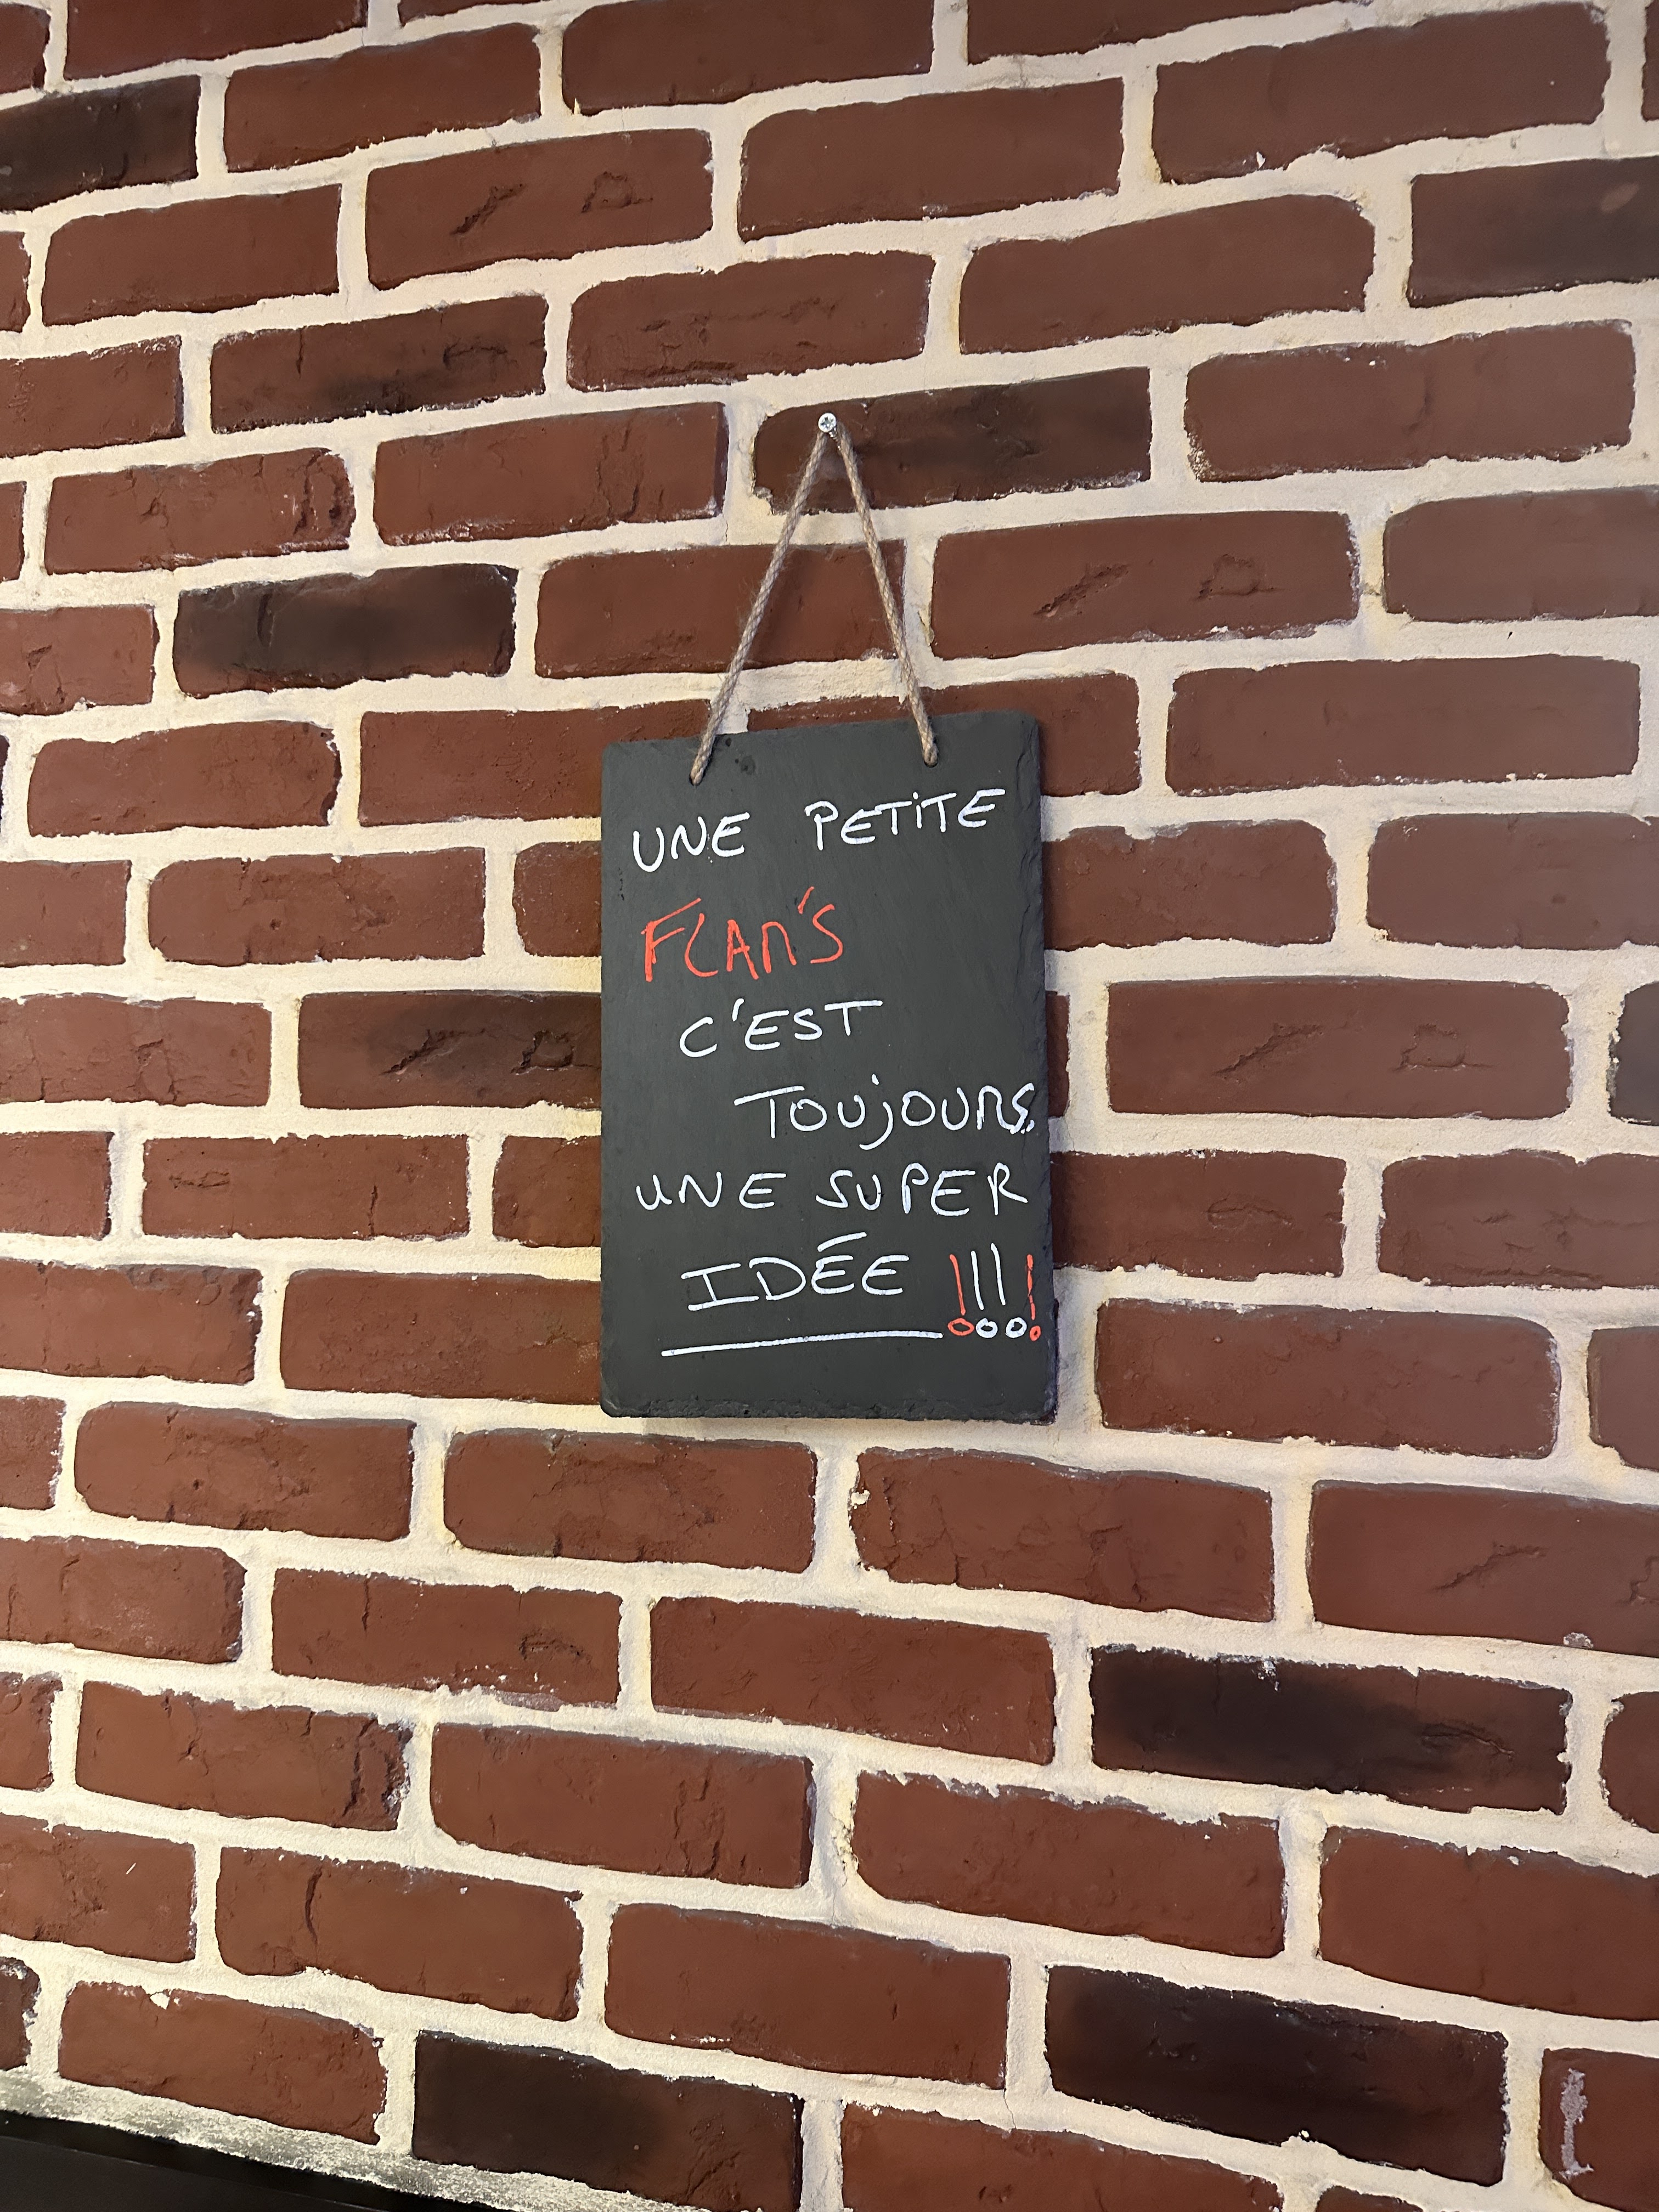 UNE PETITE
FLAM'S
C'EST
TOUJOURS
UNE SUPER
IDÉE !!!!